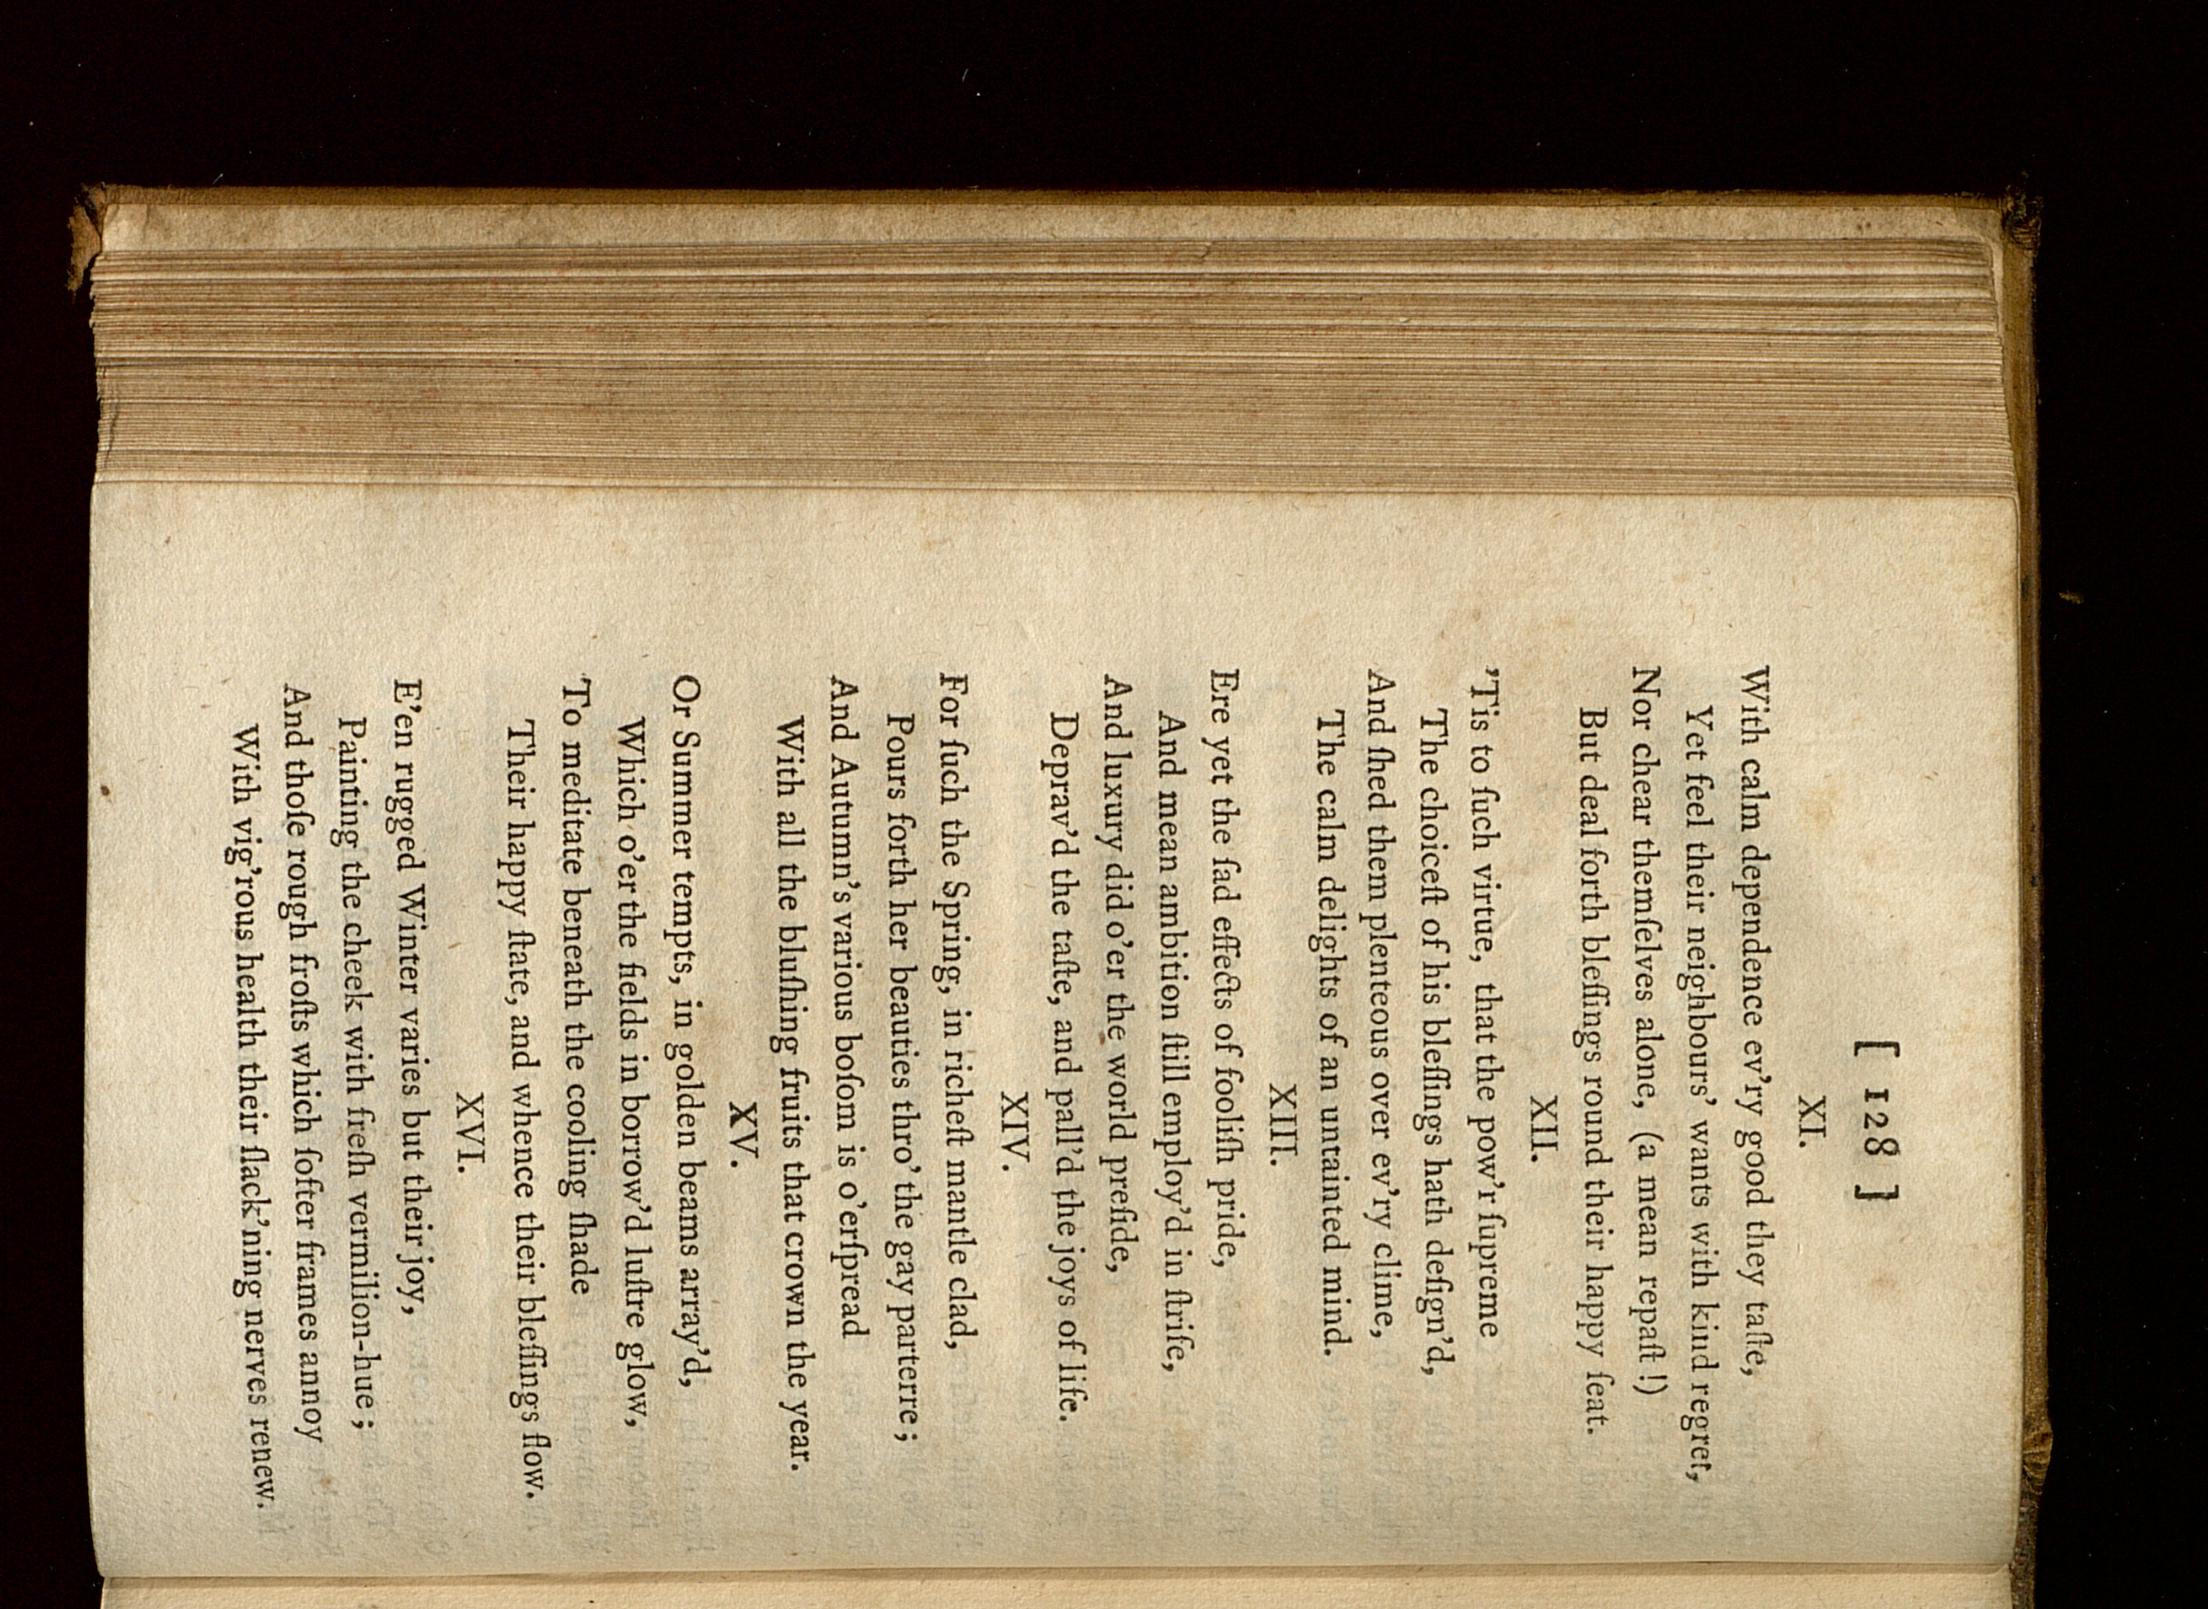 [ 128 ]
XI.
With calm dependence ev'ry good they taſte,
Yet feel their neighbours' wants with kind regret,
Nor chear themſelves alone, (a mean repaſt !)
But deal forth bleſſings round their happy ſeat.
XII.
'Tis to ſuch virtue, that the pow'r ſupreme
The choiceſt of his bleſſings hath deſign'd,
And ſhed them plenteous over ev'ry clime,
The calm delights of an untainted mind.
XIII.
Ere yet the ſad effects of fooliſh pride,
And mean ambition ſtill employ'd in ſtrife,
And luxury did o'er the world preſide,
Deprav'd the taſte, and pall'd the joys of life.
XIV.
For ſuch the Spring, in richeſt mantle clad,
Pours forth her beauties thro' the gay parterre ;
And Autumn's various boſom is o'erſpread
With all the bluſhing fruits that crown the year.
XV.
Or Summer tempts, in golden beams array'd,
Which o'er the fields in borrow'd luſtre glow,
To meditate beneath the cooling ſhade
Their happy ſtate, and whence their bleſſings flow.
XVI.
E'en rugged Winter varies but their joy,
Painting the cheek with freſh vermilion-hue ;
And thoſe rough froſts which ſofter frames annoy
With vig'rous health their ſlack'ning nerves renew.